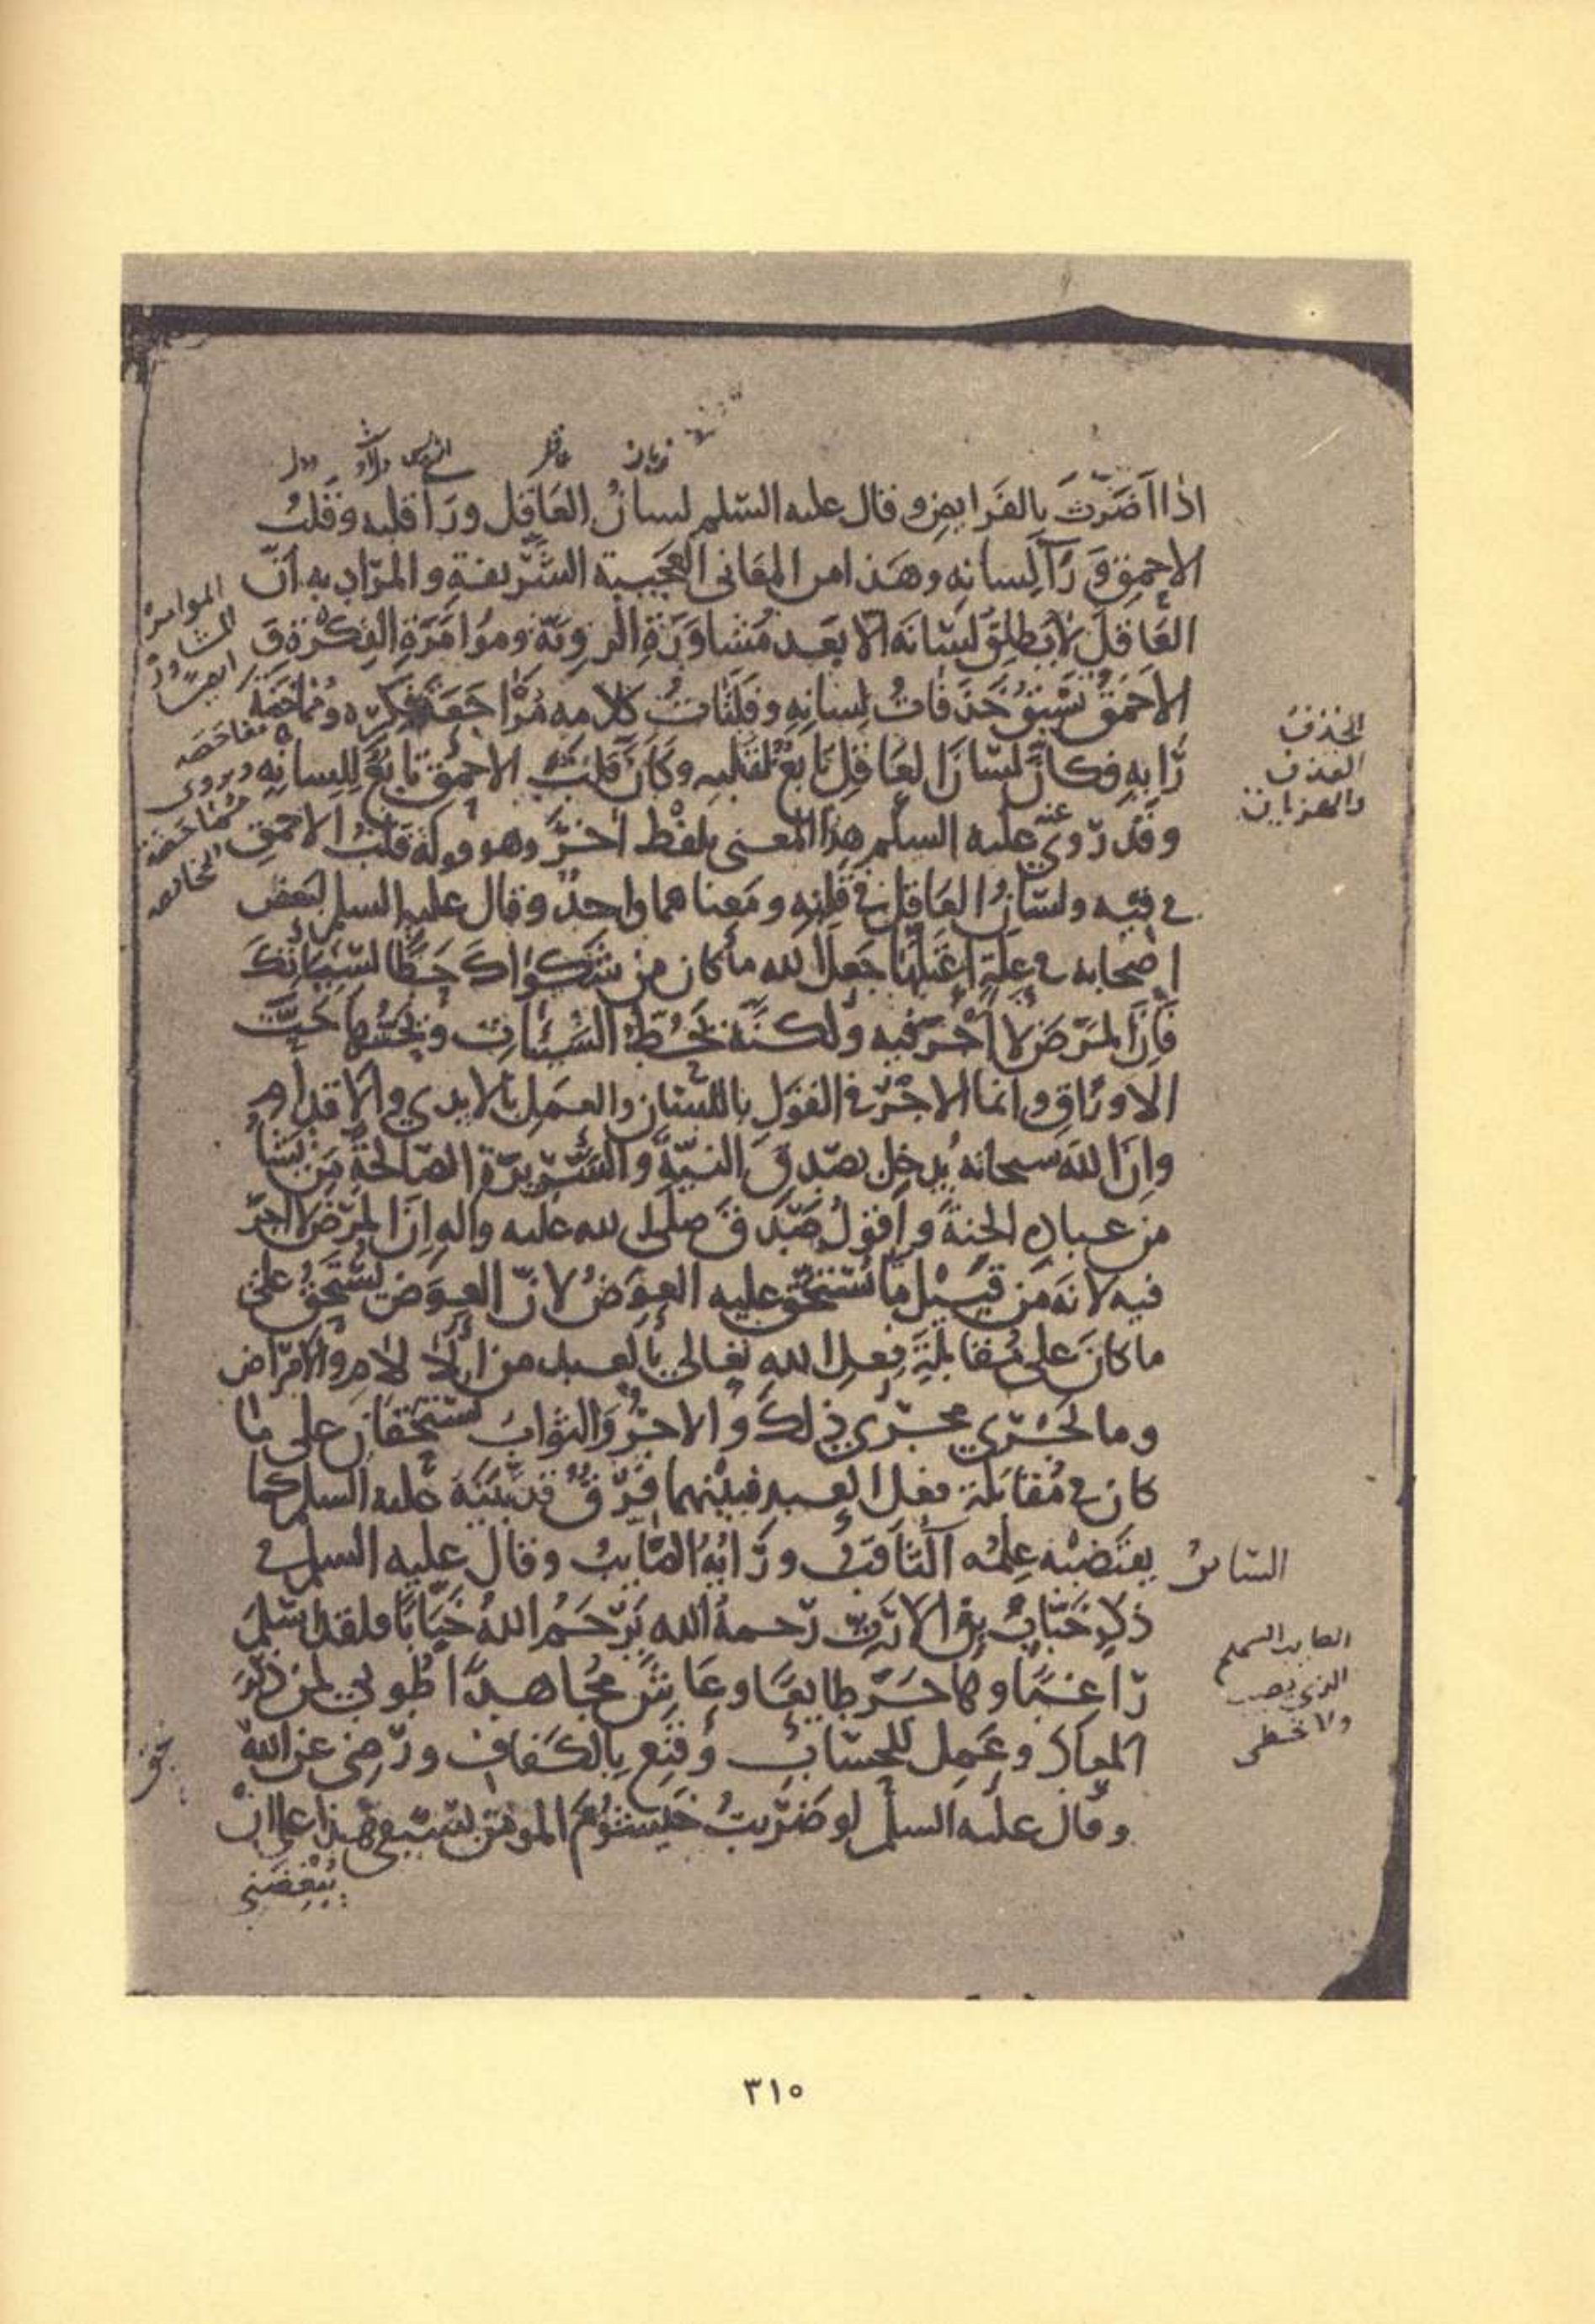 اذا اضرت بالفرايض وقال عليه السلم لسان العاقل ورا قلبه وقلب
الاحمق ورا لسانه وهذا من المعانى العجيبة الشريفة والمراد به ان
العاقل لا يطلق لسانه الا بعد مشاورة الروية ومؤامرة الفكرة و
الاحمق تسبق حذفات لسانه وفلتات كلامه مراجعة فكره ومماخضة
رايه فكان لسان العاقل تابع لقلبه وكان قلب الاحمق تابع للسانه
وقد روى عنه عليه السلم هذا المعنى بلفظ اخر وهو قوله قلب الاحمق
فى فيه ولسان العاقل فى قلبه ومعناهما واحد وقال عليه السلم لبعض
اصحابه فى علة اعتلها جعل الله ما كان من شكواك حطا لسيئاتك
فان المرض لا اجر فيه ولكنه يحط السيئات ويحتها حت
الاوراق وانما الاجر فى القول باللسان والعمل بالايدي والاقدام
وان الله سبحانه يدخل بصدق النية والسريرة الصالحة من يشاء
من عباده الجنة واقول صدق صلى الله عليه واله ان المرض لا اجر
فيه لانه من قبيل ما يستحق عليه العوض لان العوض يستحق على
ما كان على مقابلة فعل الله تعالى بالعبد من الالام والامراض
وما يجري مجري ذلك والاجر والثواب يستحقان على ما
كان فى مقابلة فعل العبد فبينهما فرق قد بينه عليه السلم كما
يقتضيه علمه الثاقب ورايه الصايب وقال عليه السلم فى
ذكر خباب بن الارت رحمه الله يرحم الله خبابا فلقد اسلم
راغبا وهاجر طايعا وعاش مجاهدا طوبي لمن ذكر
المعاد وعمل للحساب وقنع بالكفاف ورضى عن الله
وقال عليه السلم لو ضربت خيشوم المومن بسيفى هذا على ان
يبغضنى
الحذف
القذف
والهزيان
الصايب السهم
الذي يصيب
ولا يخطى
٣١٥